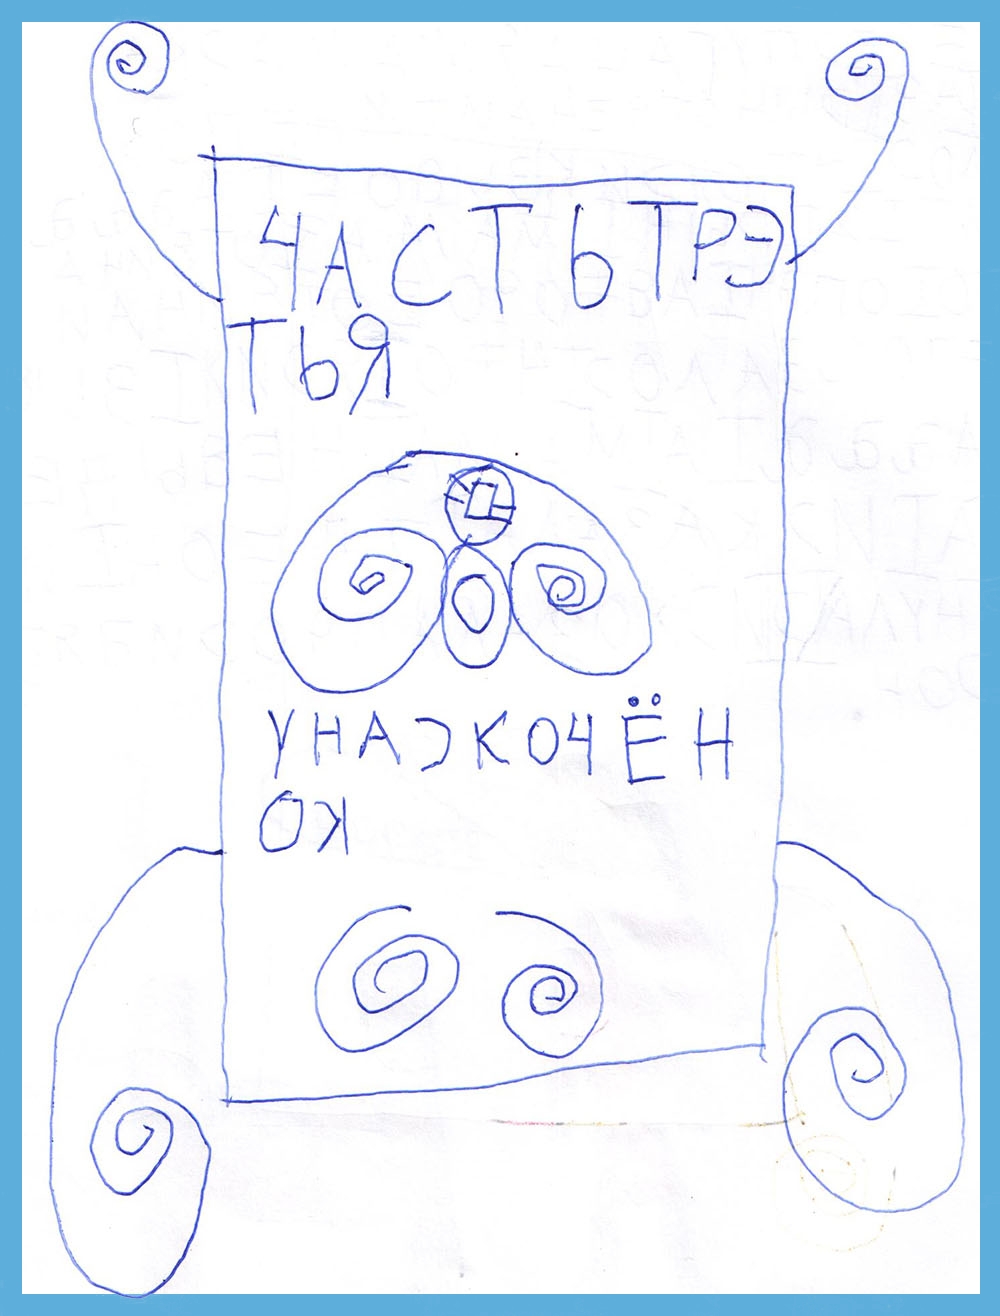 ЧАСТЬ ТРЭ
ТЬЯ
УНАСКОЧЁН
ОК